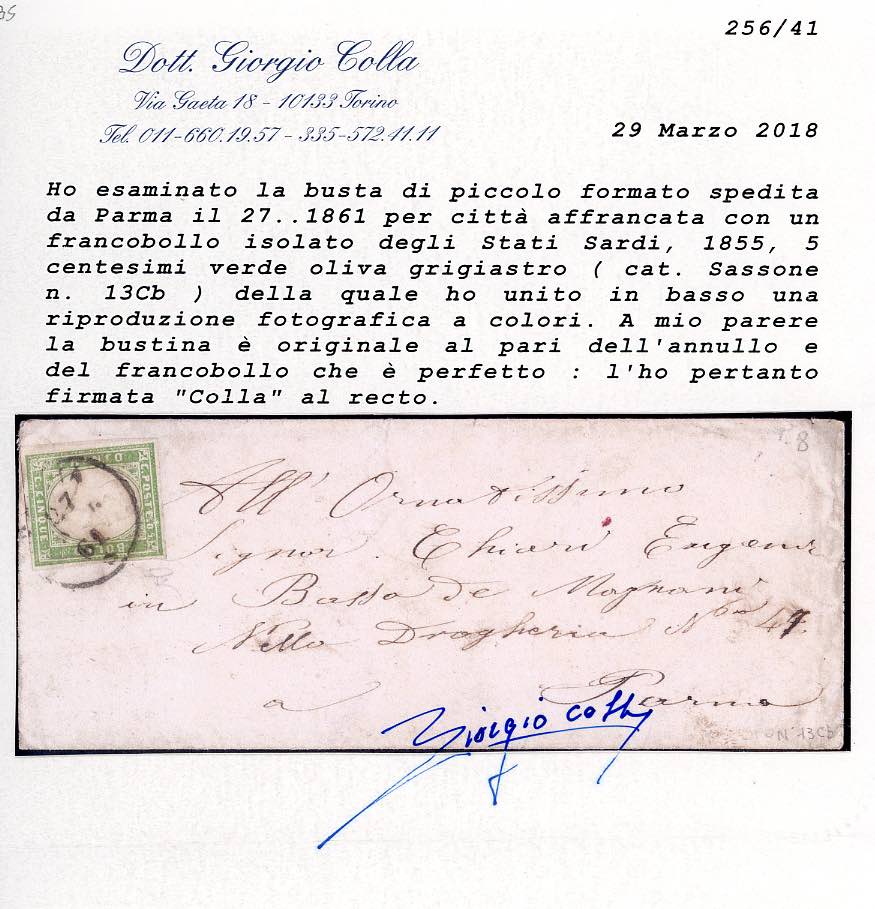 256/41
Dott. Giorgio Colla
Via Gaeta 18 - 10133 Torino
Tel. 011-660.19.57 - 335-572.41.11
29 Marzo 2018
Ho esaminato la busta di piccolo formato spedita
da Parma il 27..1861 per città affrancata con un
francobollo isolato degli Stati Sardi, 1855, 5
centesimi verde oliva grigiastro ( cat. Sassone
n. 13Cb ) della quale ho unito in basso una
riproduzione fotografica a colori. A mio parere
la bustina è originale al pari dell'annullo e
del francobollo che è perfetto : l'ho pertanto
firmata "Colla" al recto.
8
C.POSTE
BOLLO
C.CINQUE
61
All' Ornatissimo
Signor Chiari Eugenio
in Basso de Magnani
Nella Drogheria N 47
a Parma
Giorgio Colla
N 13Cb